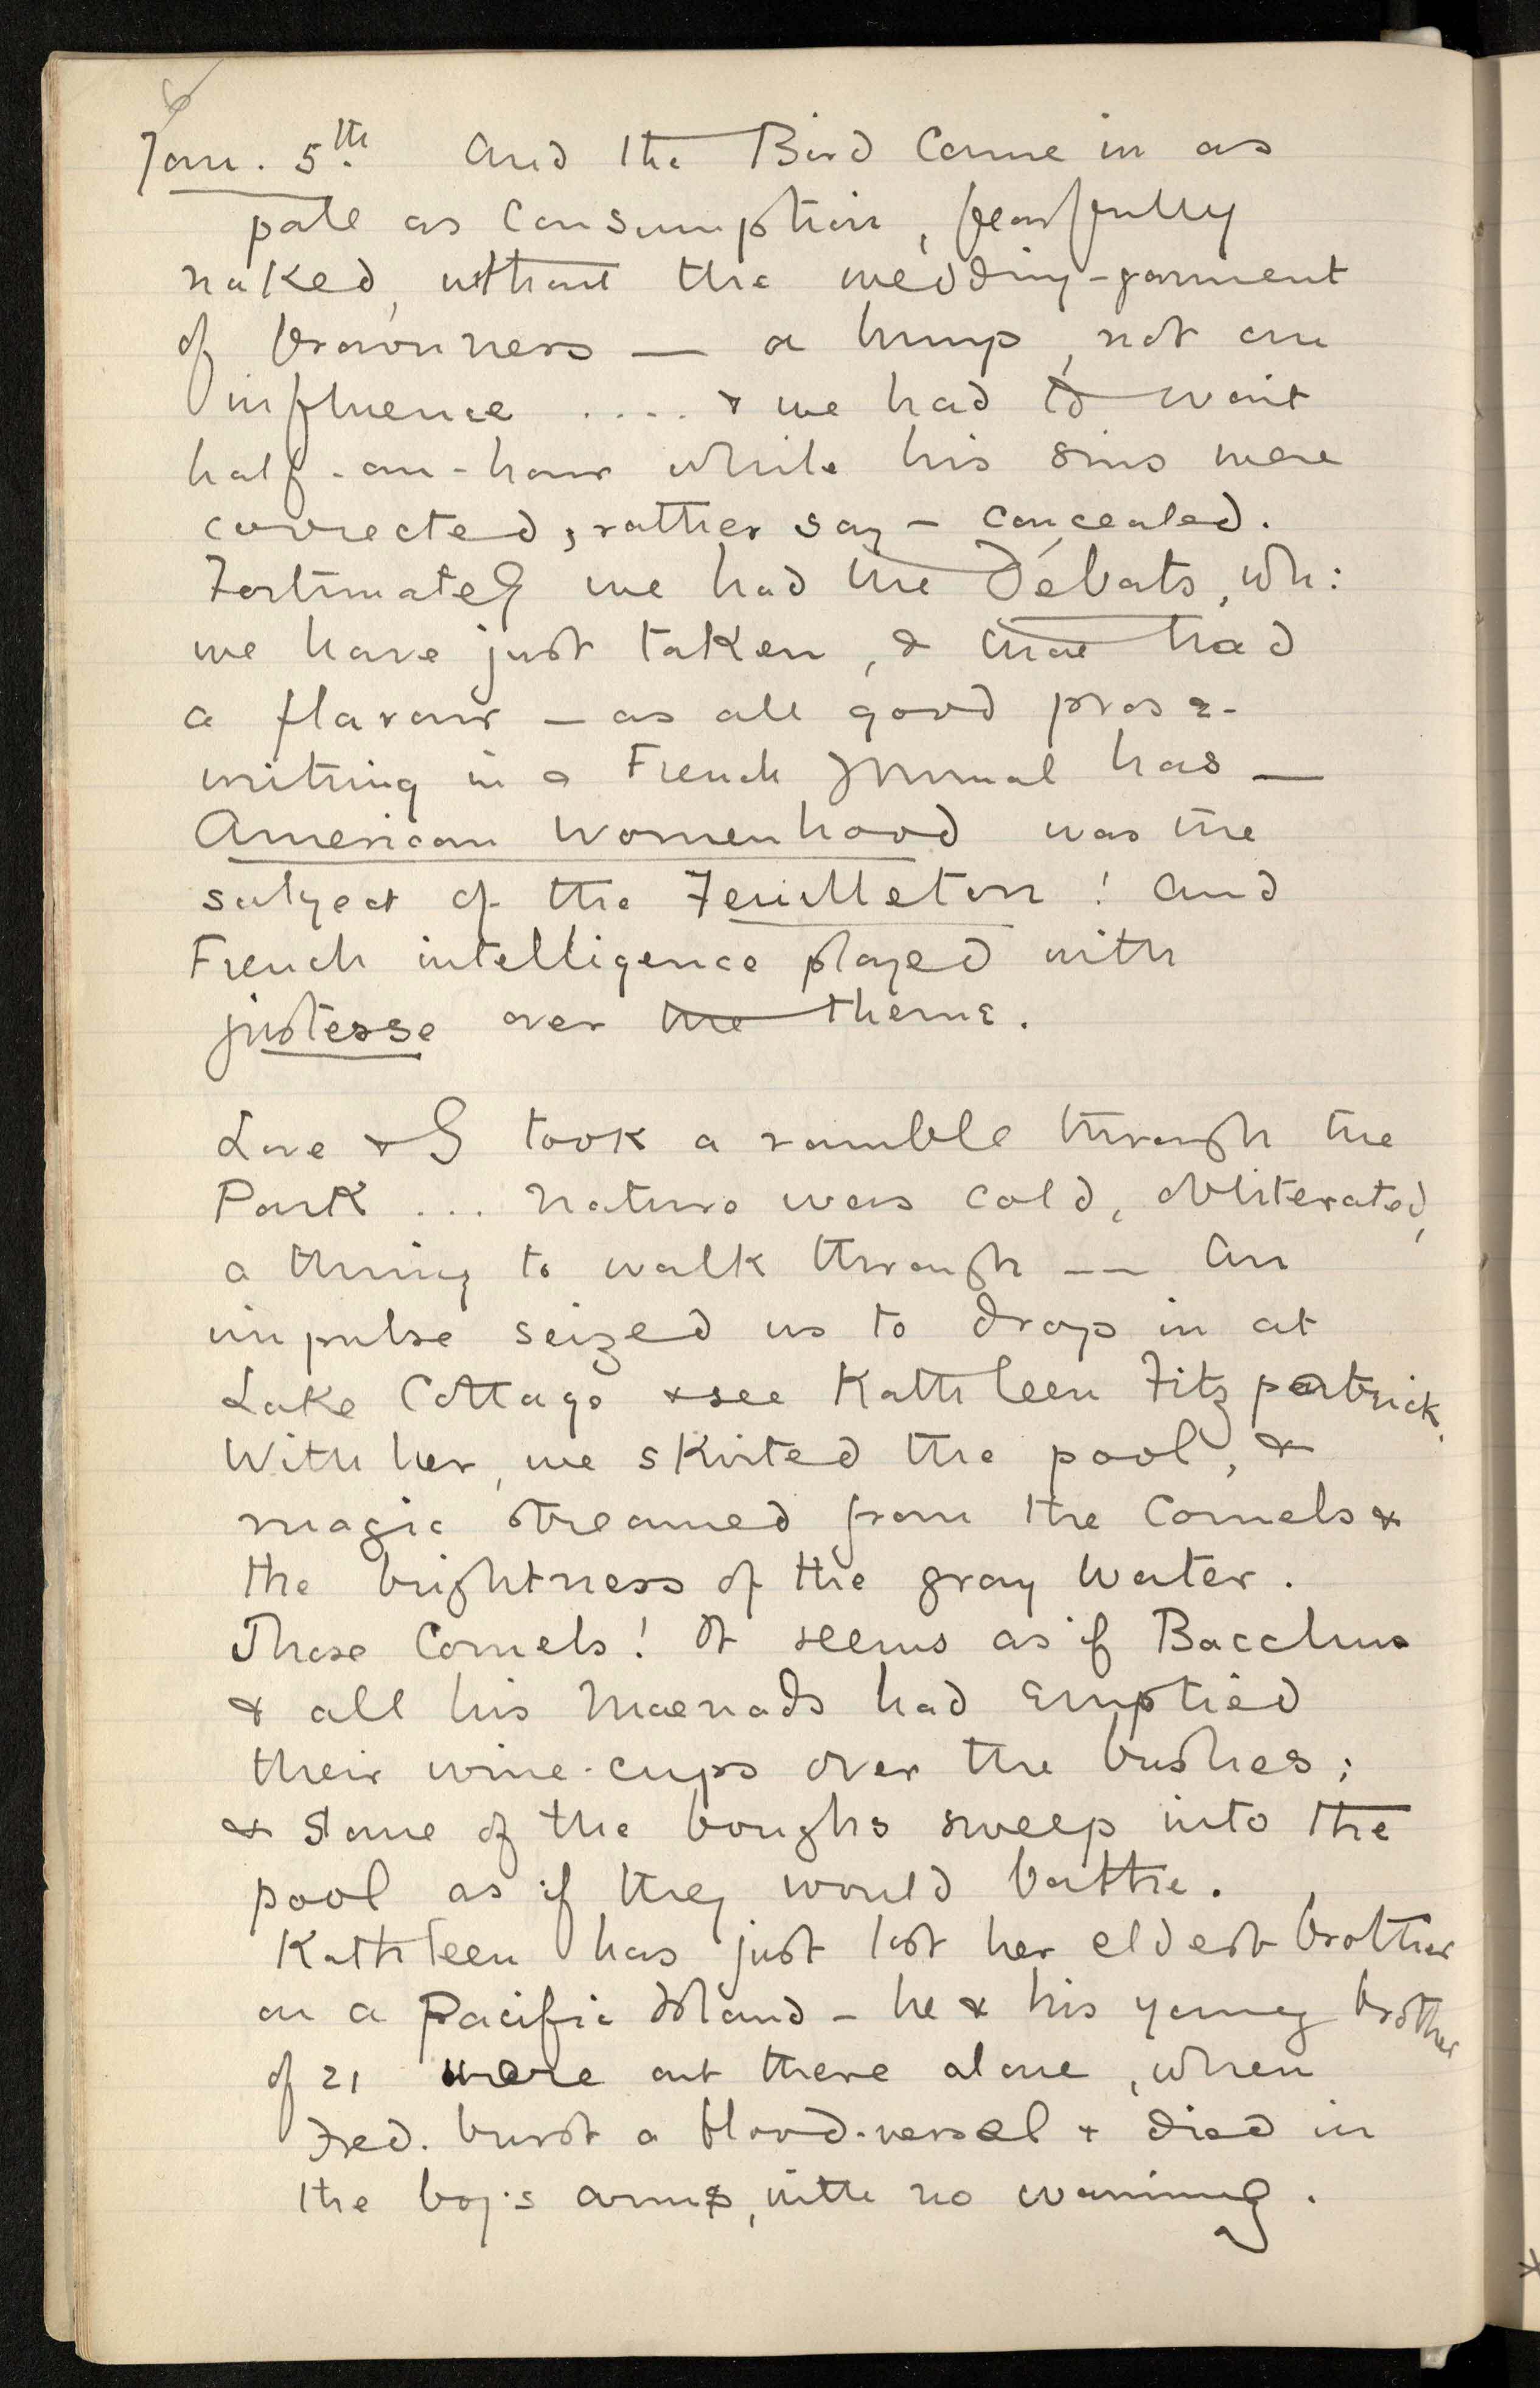 6
Jan. 5th. And the Bird came in as
pale as Consumption, fearfully
naked, without the wedding-garment
of brownness — a lump, not an
influence .... & we had to wait
half-an-hour while his sins were
corrected, rather say – concealed.
Fortunately we had the Débats, wh:
we have just taken, & that had
a flavour – as all good prose-
writing in a French Journal has —
American Womenhood was the
subject of the Feuilleton! And
French intelligence played with
justesse over the theme.
Love & I took a ramble through the
Park ... Nature was cold, obliterated,
a thing to walk through —— An
impulse seized us to drop in at
Lake Cottage & see Kathleen Fitzpatrick.
With her, we skirted the pool, &
magic streamed from the Cornels &
the brightness of the gray water.
Those Cornels! It seems as if Bacchus
& all his Maenads had emptied
their wine-cups over the bushes;
& some of the boughs sweep into the
pool as if they would bathe.
Kathleen has just lost her eldest brother
on a Pacific Island – he & his young brother
of 21 were out there alone, when
Fred. burst a blood-vessel & died in
the boy's arms, with no warning.